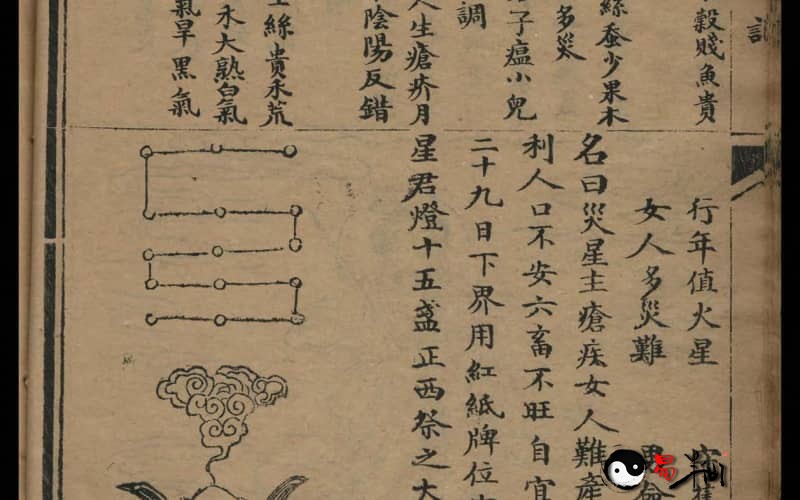 訁
穀賤魚貴
絲蚕少果木
多災
子瘟小兒
調
人生瘡疥月
陰陽反錯
絲貴禾荒
水大熟白氣
氣旱黑氣
行年值火星
女人多災難
名曰災星主瘡疾女人難產
利人口不安六畜不旺自宜
二十九日下界用紅紙牌位
星君燈十五盞正西祭之大
易